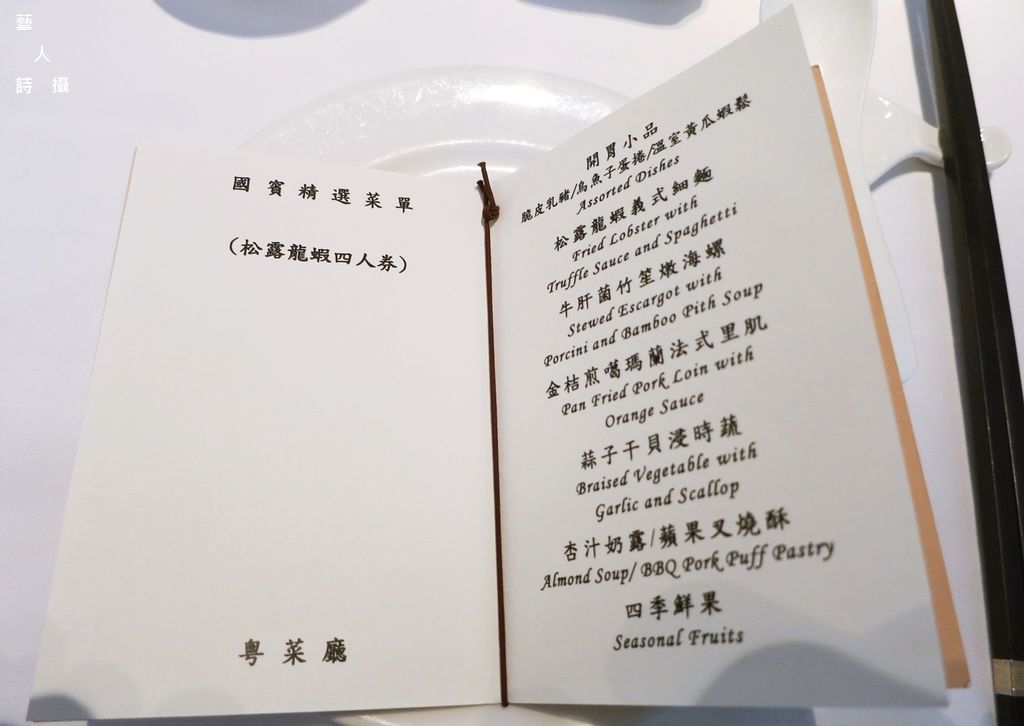 藝
人
詩 攝
國賓精選菜單
(松露龍蝦四人券)
粵菜廳
開胃小品
脆皮乳豬/烏魚子蛋捲/溫室黃瓜蝦鬆
Assorted Dishes
松露龍蝦義式細麵
Fried Lobster with
Truffle Sauce and Spaghetti
牛肝菌竹笙燉海螺
Stewed Escargot with
Porcini and Bamboo Pith Soup
金桔煎噶瑪蘭法式里肌
Pan Fried Pork Loin with
Orange Sauce
蒜子干貝浸時蔬
Braised Vegetable with
Garlic and Scallop
杏汁奶露/蘋果叉燒酥
Almond Soup/ BBQ Pork Puff Pastry
四季鮮果
Seasonal Fruits